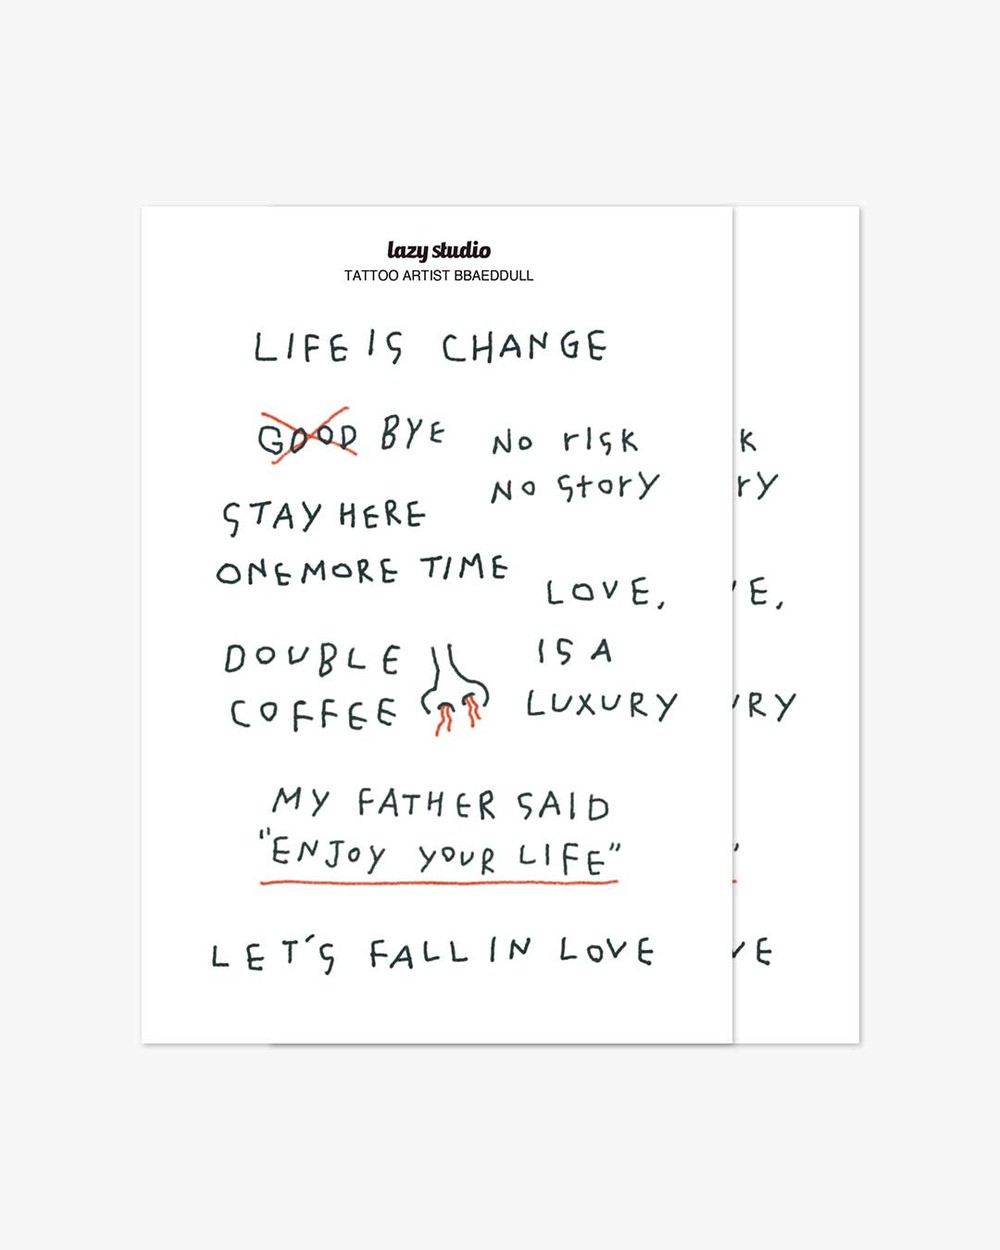 lazy studio
TATTOO ARTIST BBAEDDULL
LIFE IS CHANGE
GOOD BYE
No risk
No story
STAY HERE
ONE MORE TIME
LOVE,
IS A
LUXURY
DOUBLE
COFFEE
MY FATHER SAID
"ENJOY YOUR LIFE"
LET'S FALL IN LOVE
K
rY
E,
RY
VE